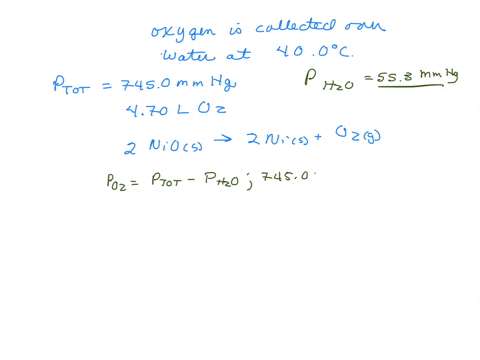 oxygen is collected over
water at 40.0°C.
P_TOT = 745.0 mm Hg
P_H2O = 55.3 mm Hg
4.70 L O2
2 NiO(s) → 2 Ni(s) + O2(g)
P_O2 = P_TOT - P_H2O ; 745.0